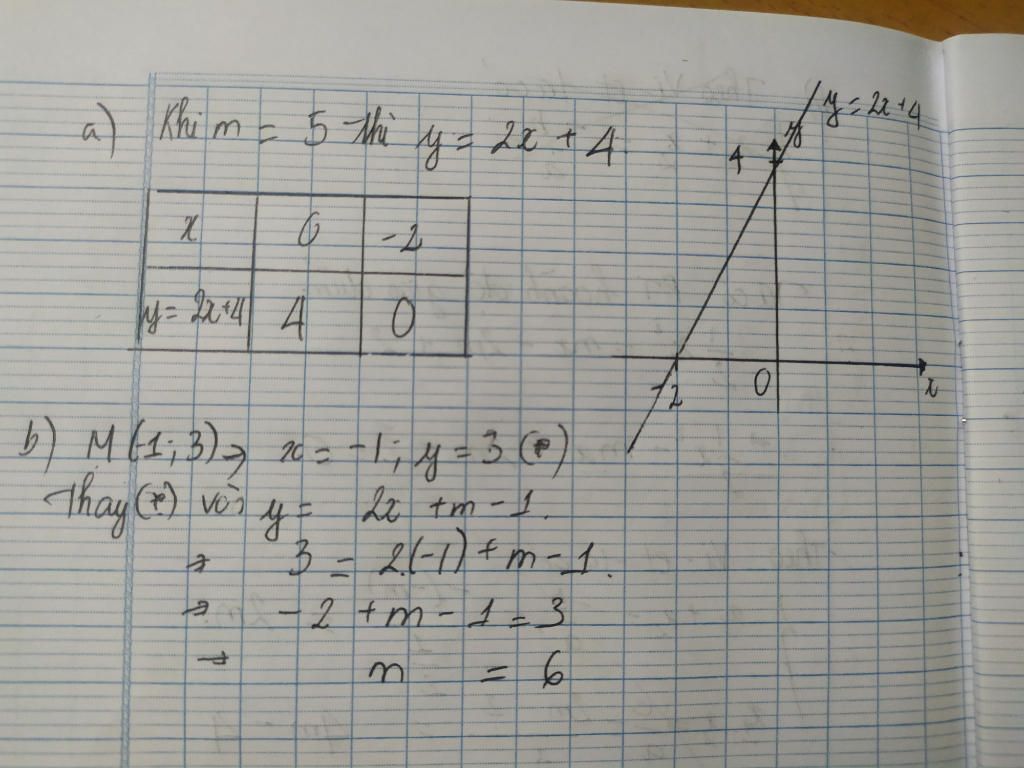 a) Khi m = 5 thì y = 2x + 4
x 0 -2
y = 2x+4 4 0
y = 2x+4
y
4
-2
0
x
b) M (-1; 3) → x = -1; y = 3 (*)
Thay (*) vào y = 2x + m - 1.
→ 3 = 2.(-1) + m - 1.
→ -2 + m - 1 = 3
→ m = 6